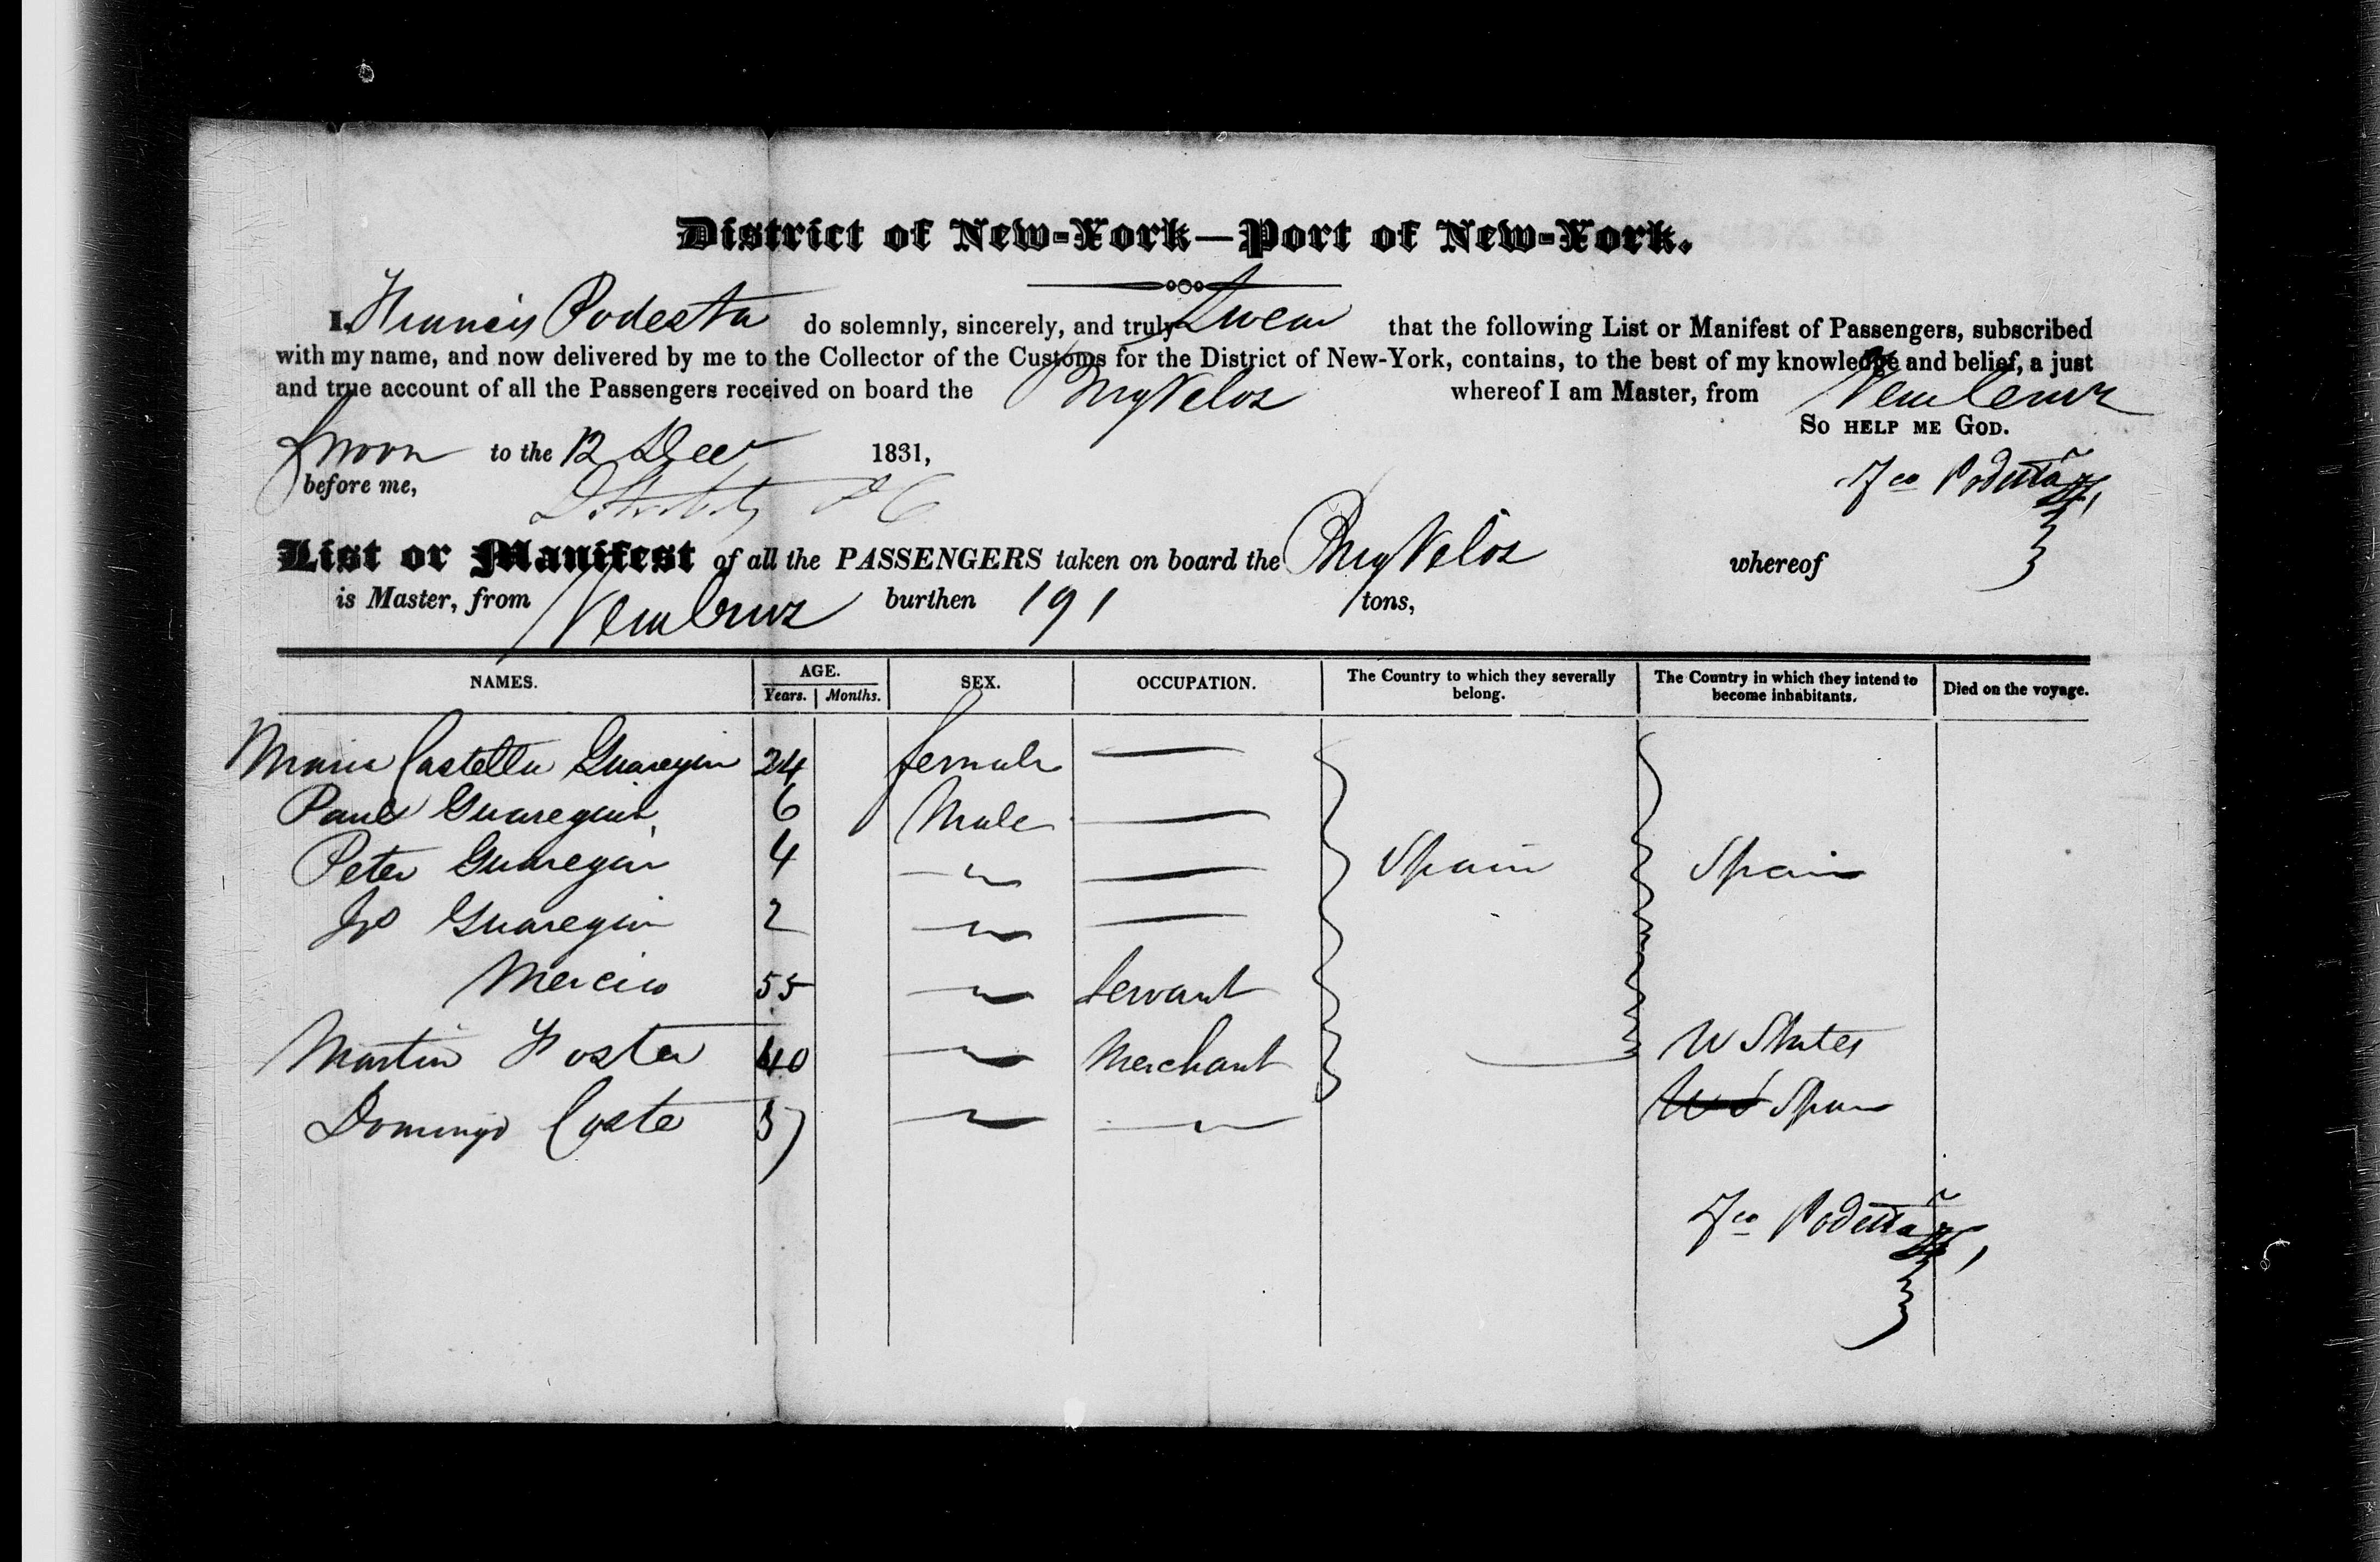 District of New-York—Port of New-York.
I, Francis Podesta do solemnly, sincerely, and truly Swear that the following List or Manifest of Passengers, subscribed
with my name, and now delivered by me to the Collector of the Customs for the District of New-York, contains, to the best of my knowledge and belief, a just
and true account of all the Passengers received on board the Brig Velos whereof I am Master, from Vera Cruz
So help me God.
Sworn to the 12 Dec 1831,
before me,
Fco Podesta
List or Manifest of all the PASSENGERS taken on board the Brig Velos whereof
is Master, from Vera Cruz burthen 191 tons,
NAMES. AGE. Years. Months. SEX. OCCUPATION. The Country to which they severally belong. The Country in which they intend to become inhabitants. Died on the voyage.
Maria Castella Guaregin 24 female —
Paul Guaregin 6 Male —
Peter Guaregin 4 " — Spain Spain
Guaregin 2 " —
55 " Servant
Martin Foster 40 " Merchant U States
Domingo Coste 37 " " Spain
Fco Podesta